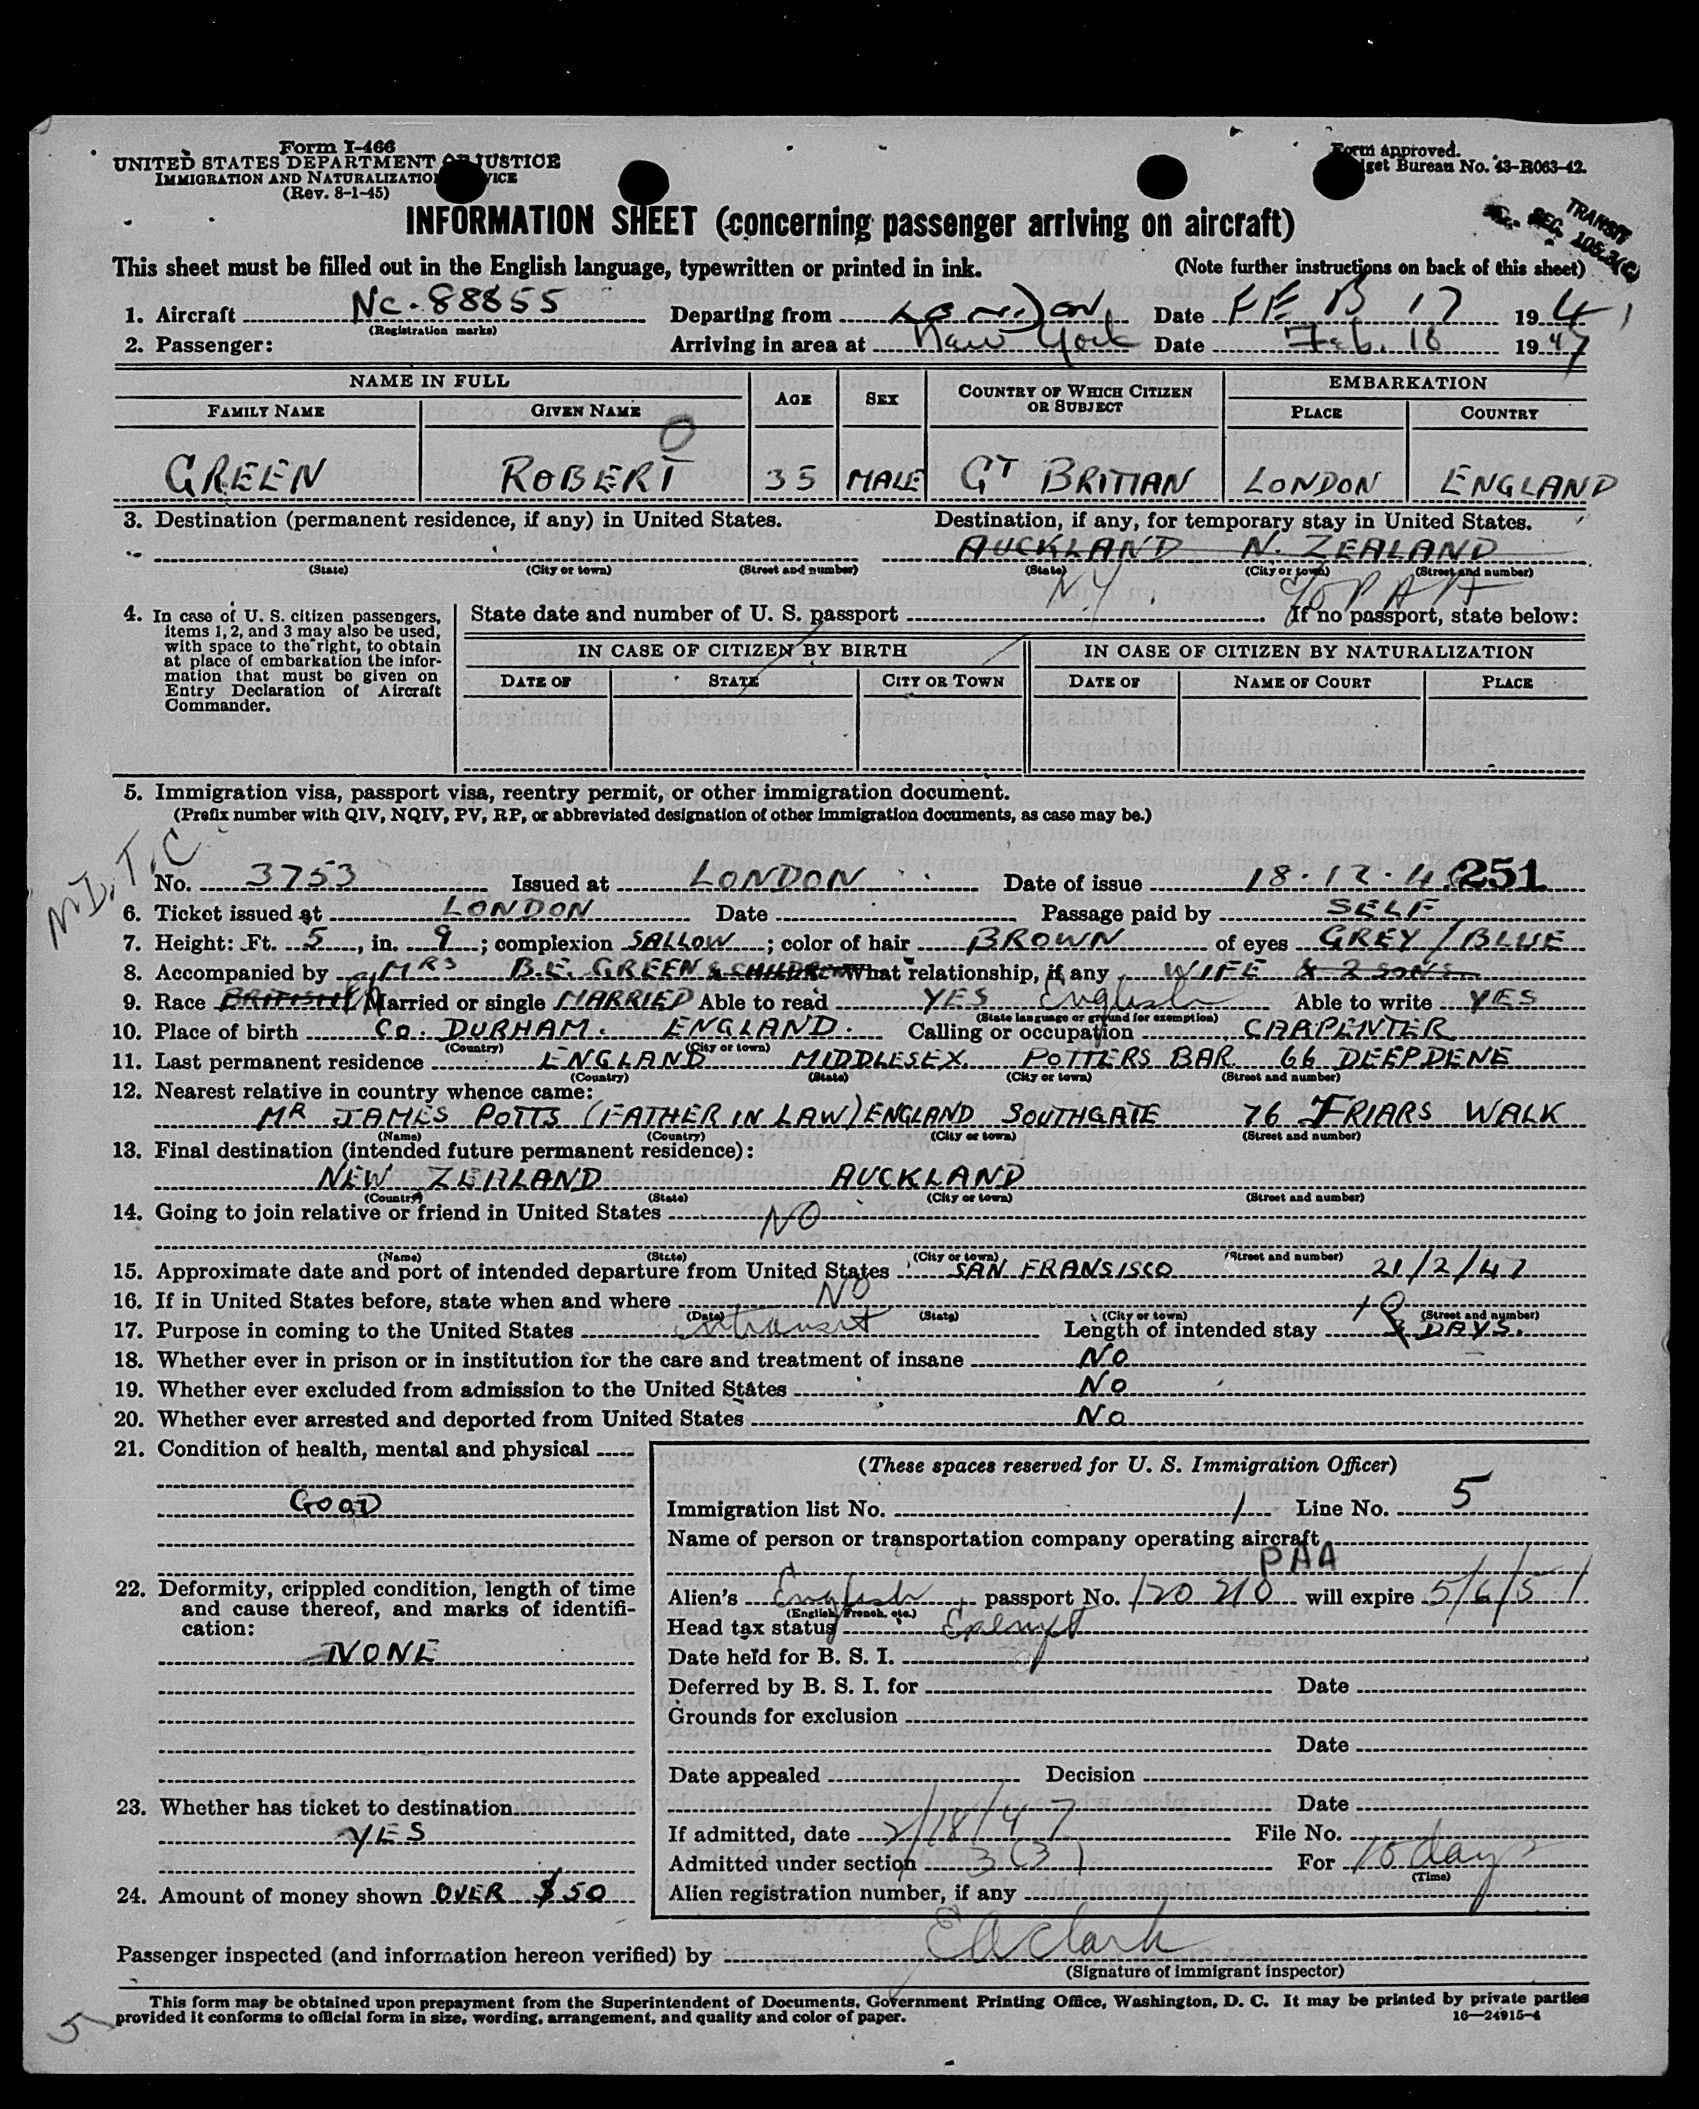 Form I-466
UNITED STATES DEPARTMENT OF JUSTICE
IMMIGRATION AND NATURALIZATION SERVICE
(Rev. 8-1-45)
Form approved.
Budget Bureau No. 43-R063-42.
TRANSIT
SEC. 105.3(C)
INFORMATION SHEET (concerning passenger arriving on aircraft)
This sheet must be filled out in the English language, typewritten or printed in ink. (Note further instructions on back of this sheet)
1. Aircraft NC-88855 Departing from LONDON Date FEB 17 194
(Registration marks)
2. Passenger: Arriving in area at New York Date Feb. 18 1947
NAME IN FULL AGE SEX COUNTRY OF WHICH CITIZEN OR SUBJECT EMBARKATION
FAMILY NAME GIVEN NAME PLACE COUNTRY
O
GREEN ROBERT 35 MALE GT BRITIAN LONDON ENGLAND
3. Destination (permanent residence, if any) in United States. Destination, if any, for temporary stay in United States.
AUCKLAND N. ZEALAND
(State) (City or town) (Street and number) (State) (City or town) (Street and number)
N.Y. % PAA
4. In case of U. S. citizen passengers, items 1, 2, and 3 may also be used, with space to the right, to obtain at place of embarkation the information that must be given on Entry Declaration of Aircraft Commander.
State date and number of U. S. passport If no passport, state below:
IN CASE OF CITIZEN BY BIRTH IN CASE OF CITIZEN BY NATURALIZATION
DATE OF STATE CITY OR TOWN DATE OF NAME OF COURT PLACE
5. Immigration visa, passport visa, reentry permit, or other immigration document.
(Prefix number with QIV, NQIV, PV, RP, or abbreviated designation of other immigration documents, as case may be.)
No. 3753 Issued at LONDON Date of issue 18.12.46 251
6. Ticket issued at LONDON Date Passage paid by SELF
7. Height: Ft. 5, in. 9; complexion SALLOW; color of hair BROWN of eyes GREY/BLUE
8. Accompanied by MRS B.E. GREEN & CHILDREN What relationship, if any WIFE & 2 SONS
9. Race BRITISH Married or single MARRIED Able to read YES English Able to write YES
(State language or ground for exemption)
10. Place of birth CO. DURHAM. ENGLAND. Calling or occupation CARPENTER
(Country) (City or town)
11. Last permanent residence ENGLAND MIDDLESEX POTTERS BAR 66 DEEPDENE
(Country) (State) (City or town) (Street and number)
12. Nearest relative in country whence came:
MR JAMES POTTS (FATHER IN LAW) ENGLAND SOUTHGATE 76 FRIARS WALK
(Name) (Country) (City or town) (Street and number)
13. Final destination (intended future permanent residence):
NEW ZEALAND AUCKLAND
(Country) (State) (City or town) (Street and number)
14. Going to join relative or friend in United States NO
(Name) (State) (City or town) (Street and number)
15. Approximate date and port of intended departure from United States SAN FRANSISCO 21/2/47
16. If in United States before, state when and where NO
(Date) (State) (City or town) (Street and number)
17. Purpose in coming to the United States intransit Length of intended stay 10 DAYS.
18. Whether ever in prison or in institution for the care and treatment of insane NO
19. Whether ever excluded from admission to the United States NO
20. Whether ever arrested and deported from United States NO
21. Condition of health, mental and physical
GOOD
22. Deformity, crippled condition, length of time and cause thereof, and marks of identification:
NONE
23. Whether has ticket to destination
YES
24. Amount of money shown OVER $50
(These spaces reserved for U. S. Immigration Officer)
Immigration list No. 1 Line No. 5
Name of person or transportation company operating aircraft
PAA
Alien's English, passport No. 120210 will expire 5/6/51
(English, French, etc.)
Head tax status Exempt
Date held for B. S. I.
Deferred by B. S. I. for Date
Grounds for exclusion
Date
Date appealed Decision
Date
If admitted, date 2/18/47 File No.
Admitted under section 3(3) For 10 days
(Time)
Alien registration number, if any
Passenger inspected (and information hereon verified) by EA Clark
(Signature of immigrant inspector)
This form may be obtained upon prepayment from the Superintendent of Documents, Government Printing Office, Washington, D. C. It may be printed by private parties
provided it conforms to official form in size, wording, arrangement, and quality and color of paper. 16—24915-4
5